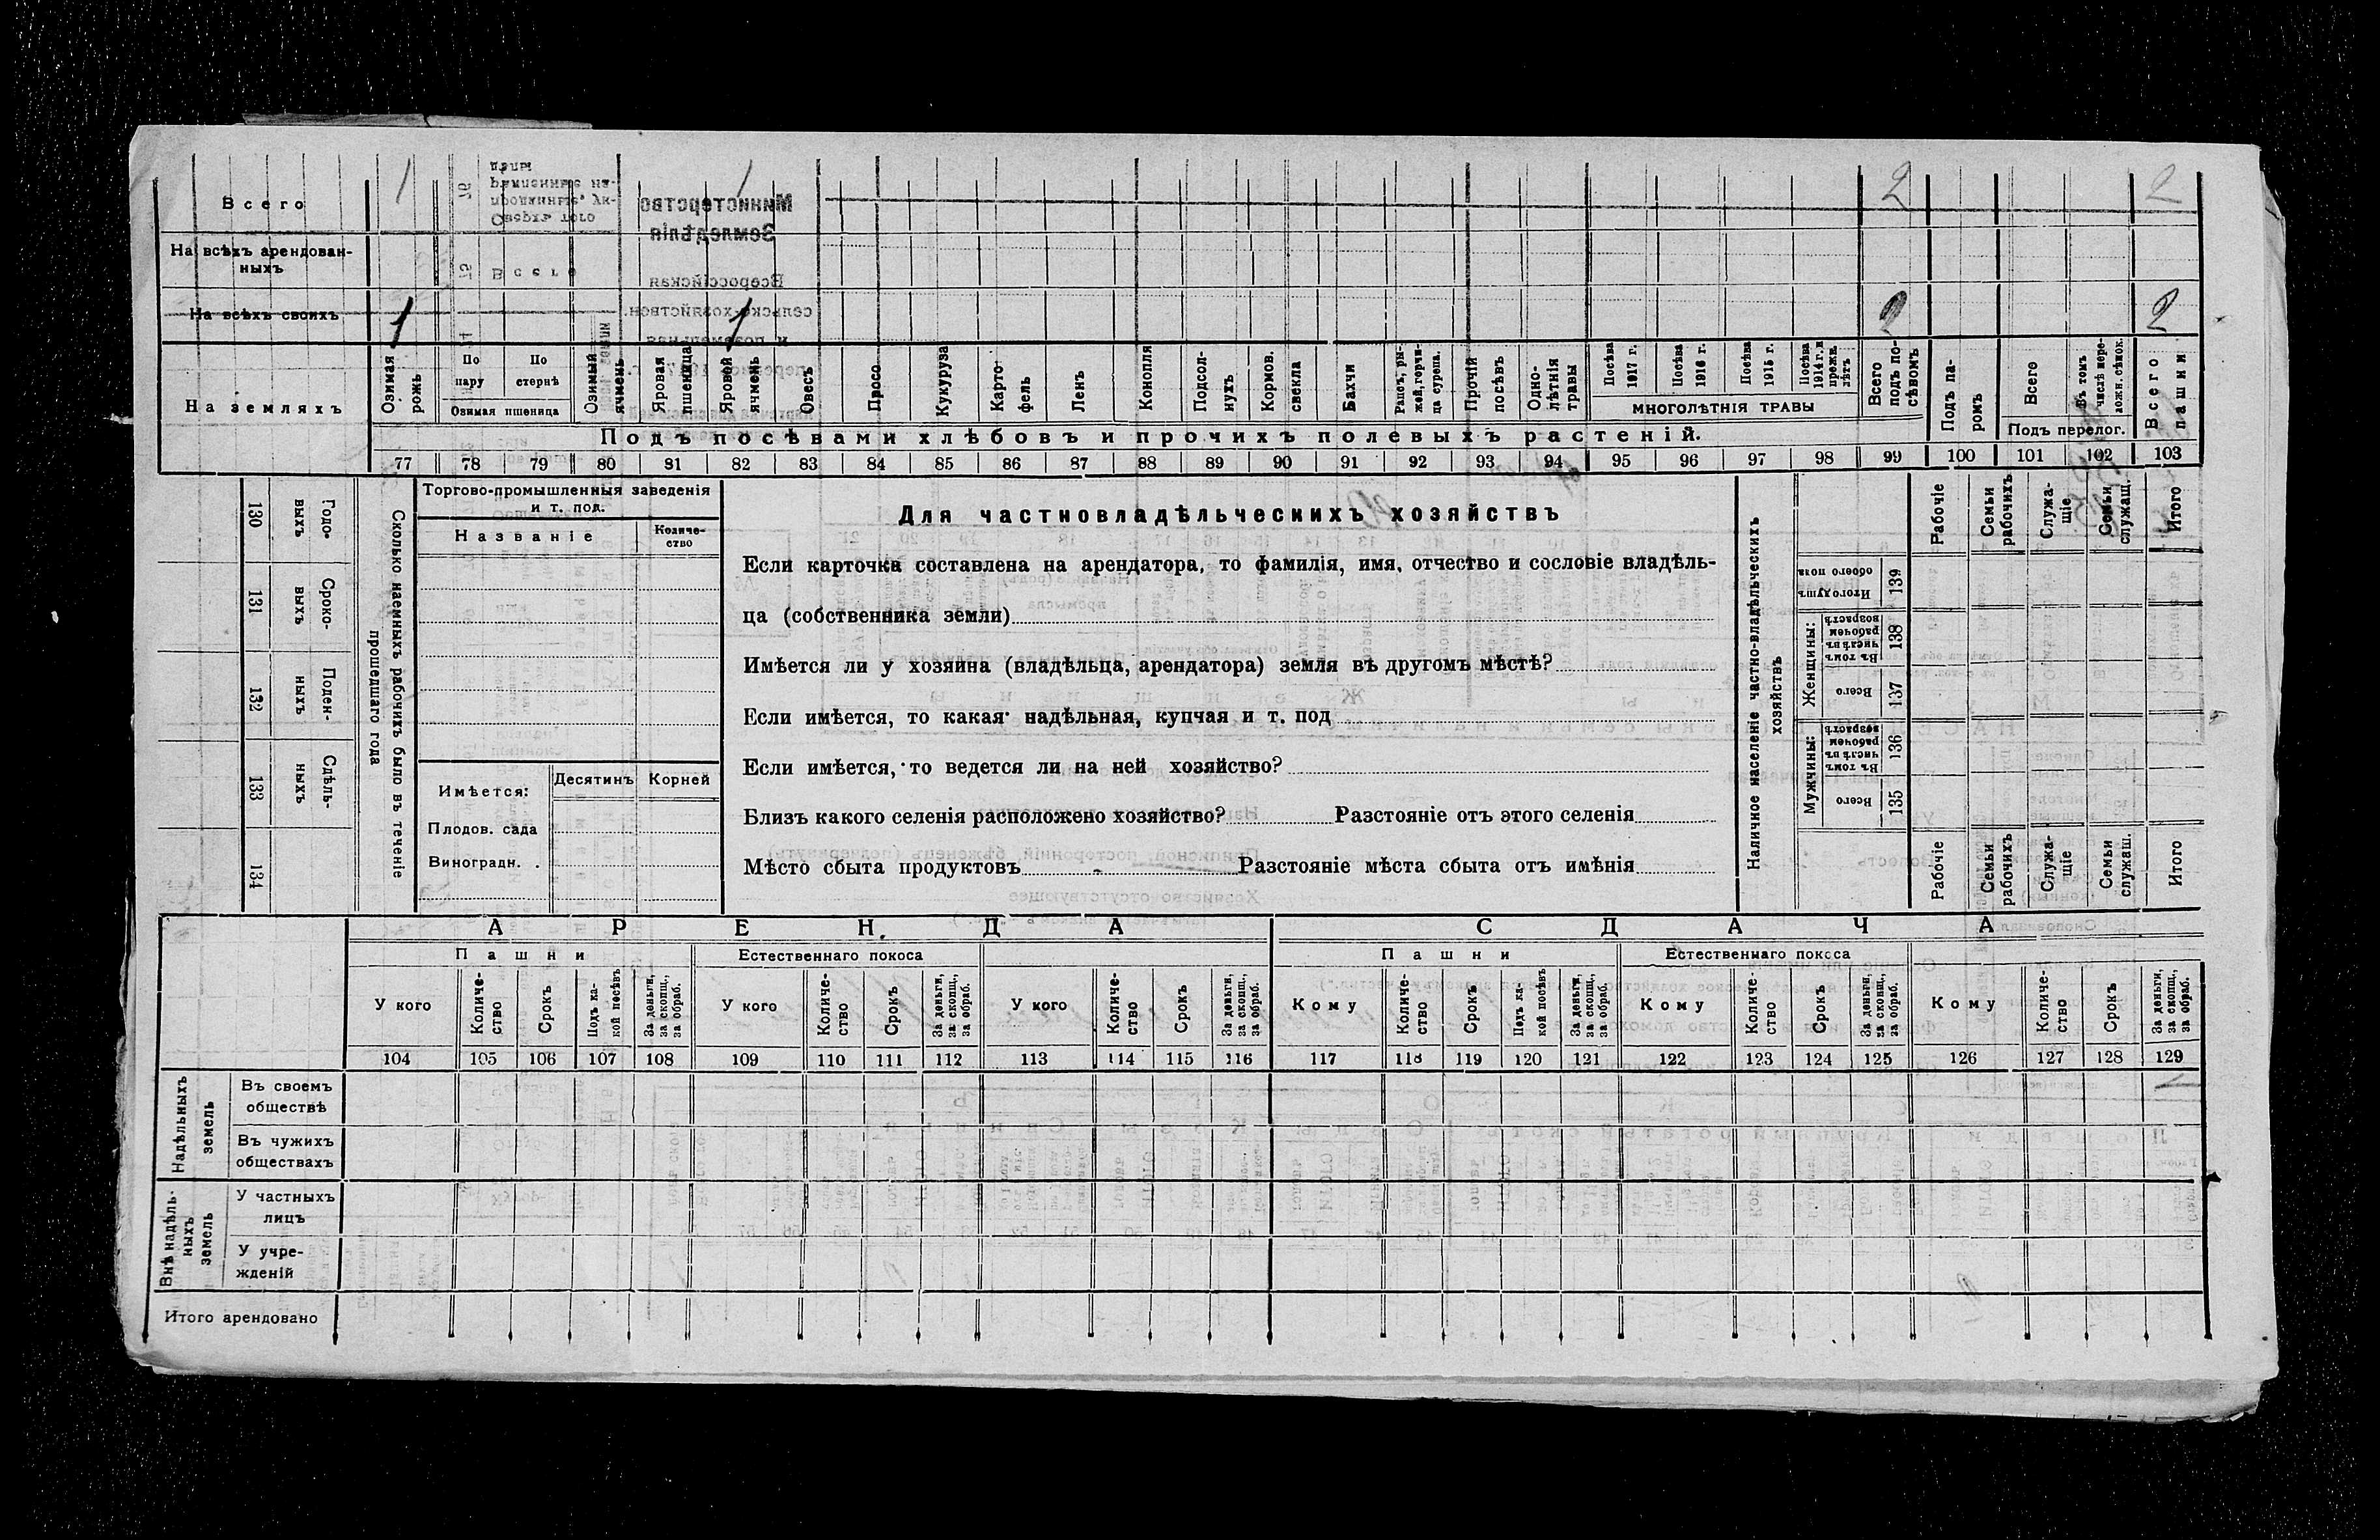 Всего 1 1 2 2
На всѣхъ арендован-
ныхъ
На всѣхъ своихъ 1 1 2 2
На земляхъ
Озимая рожь
По пару
По стернѣ
Озимая пшеница
Озимый ячмень
Яровая пшеница
Яровой ячмень
Овесъ
Просо
Кукуруза
Карто-
фель
Ленъ
Конопля
Подсол-
нухъ
Кормов. свекла
Бахчи
Рапсъ, ры-
жей, горчи-
ца сурепа.
Прочій посѣвъ
Одно-
лѣтнія травы
Посѣва 1917 г.
Посѣва 1916 г.
Посѣва 1915 г.
Посѣва 1914 г. и прежн. лѣтъ
МНОГОЛѢТНІЯ ТРАВЫ
Всего подъ по-
сѣвомъ
Подъ па-
ромъ
Всего
Въ томъ числѣ пере-
лож. сѣнок.
Подъ перелог.
Всего пашни
Подъ посѣвами хлѣбовъ и прочихъ полевыхъ растеній.
77 78 79 80 81 82 83 84 85 86 87 88 89 90 91 92 93 94 95 96 97 98 99 100 101 102 103
130 Годо-
выхъ
131 Сроко-
выхъ
132 Поден-
ныхъ
133 Сдѣль-
ныхъ
134
Сколько наемныхъ рабочихъ было въ теченіе
прошедшаго года
Торгово-промышленныя заведенія
и т. под.
Названіе
Количе-
ство
Имѣется:
Десятинъ Корней
Плодов. сада
Виноградн. .
Для частновладѣльческихъ хозяйствъ
Если карточка составлена на арендатора, то фамилія, имя, отчество и сословіе владѣль-
ца (собственника земли)
Имѣется ли у хозяина (владѣльца, арендатора) земля въ другомъ мѣстѣ?
Если имѣется, то какая надѣльная, купчая и т. под
Если имѣется, то ведется ли на ней хозяйство?
Близъ какого селенія расположено хозяйство? Разстояніе отъ этого селенія
Мѣсто сбыта продуктовъ Разстояніе мѣста сбыта отъ имѣнія
Наличное населеніе частно-владѣльческихъ
хозяйствъ
Рабочіе
Семьи рабочихъ
Служа-
щіе
Семьи служащ.
Итого
Итого душъ обоего пола 139
Женщины:
Въ томъ числѣ въ рабочемъ возрастѣ 138
Всего 137
Мужчины:
Въ томъ числѣ въ рабочемъ возрастѣ 136
Всего 135
Рабочіе
Семьи рабочихъ
Служа-
щіе
Семьи служащ.
Итого
АРЕНДА СДАЧА
Пашни Естественнаго покоса Пашни Естественнаго покоса
У кого
Количе-
ство
Срокъ
Подъ ка-
кой посѣвъ
За деньги, за скопщ., за обраб.
У кого
Количе-
ство
Срокъ
За деньги, за скопщ., за обраб.
У кого
Количе-
ство
Срокъ
За деньги, за скопщ., за обраб.
Кому
Количе-
ство
Срокъ
Подъ ка-
кой посѣвъ
За деньги, за скопщ., за обраб.
Кому
Количе-
ство
Срокъ
За деньги, за скопщ., за обраб.
Кому
Количе-
ство
Срокъ
За деньги, за скопщ., за обраб.
104 105 106 107 108 109 110 111 112 113 114 115 116 117 118 119 120 121 122 123 124 125 126 127 128 129
Надѣльныхъ
земель
Въ своемъ
обществѣ
Въ чужихъ
обществахъ
Внѣ надѣль-
ныхъ
земель
У частныхъ
лицъ
У учре-
жденій
Итого арендовано